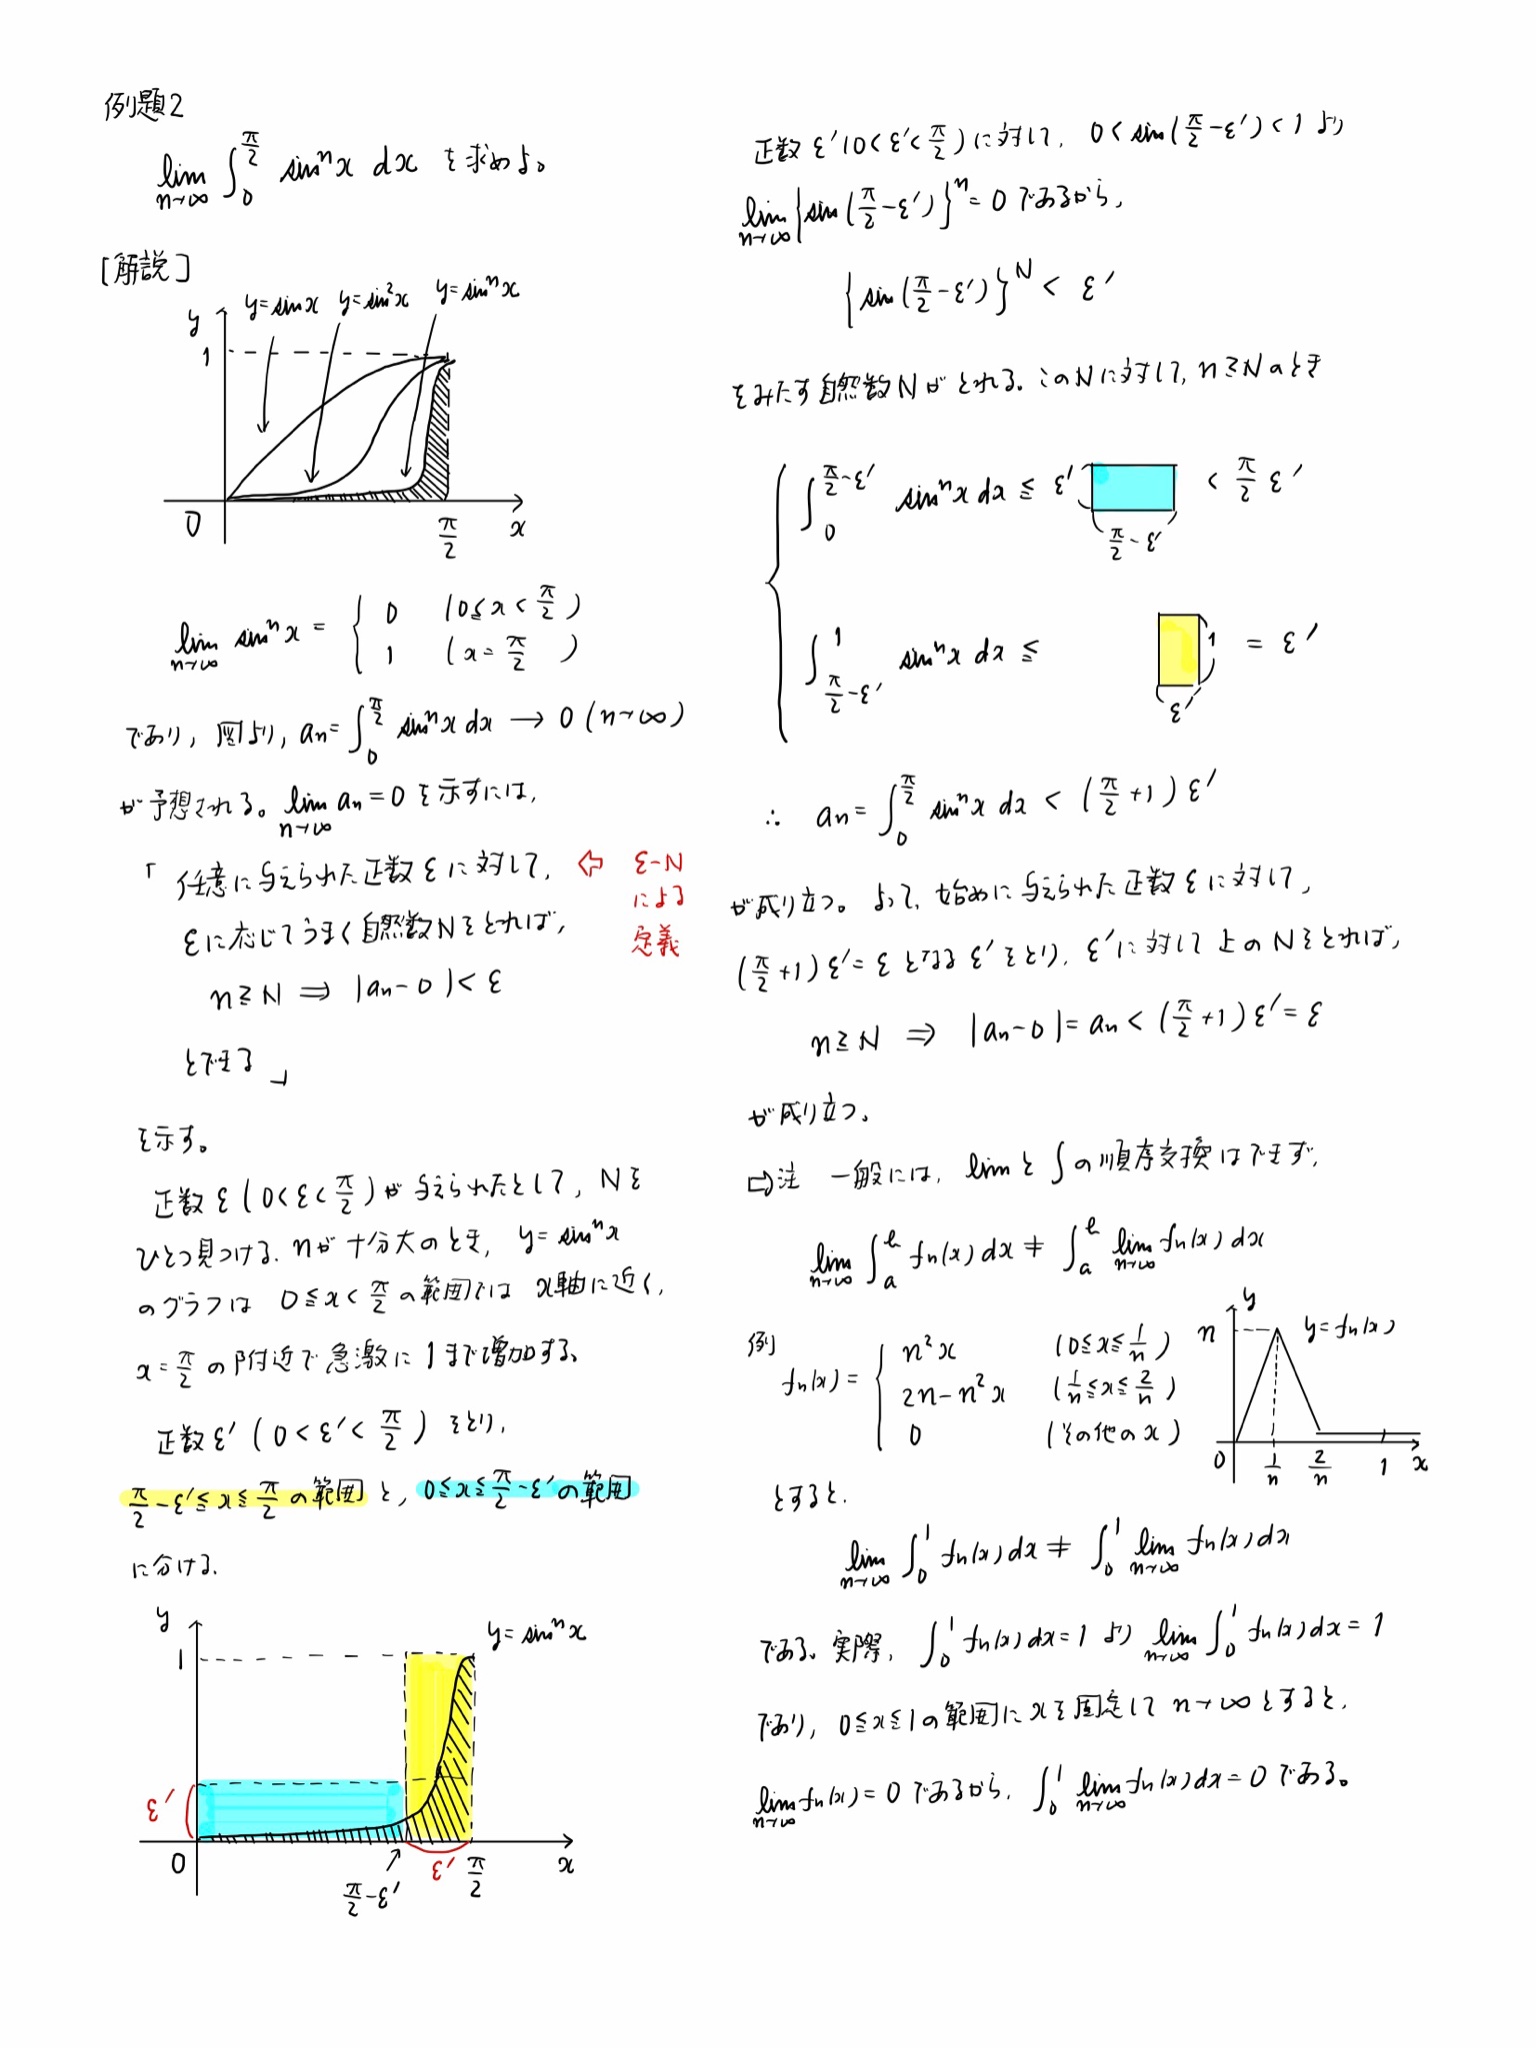 例題2
lim_{n→∞} ∫_0^{π/2} sin^n x dx を求めよ。
[解説]
y=sinx y=sin²x y=sin^n x
y
1
0
π/2
x
lim_{n→∞} sin^n x = { 0 (0≦x<π/2)
1 (x=π/2)
であり, 図より, an=∫_0^{π/2} sin^n x dx → 0 (n→∞)
が予想される。lim_{n→∞} an=0 を示すには,
「任意に与えられた正数εに対して, ⇦ ε-N
による
定義
εに応じてうまく自然数Nをとれば,
n≧N ⇒ |an-0|<ε
とできる」
を示す。
正数ε(0<ε<π/2)が与えられたとして, Nを
ひとつ見つける. nが十分大のとき, y=sin^n x
のグラフは 0≦x<π/2 の範囲では x軸に近く,
x=π/2 の附近で急激に1まで増加する。
正数ε'(0<ε'<π/2)をとり,
π/2-ε'≦x≦π/2 の範囲と, 0≦x≦π/2-ε'の範囲
に分ける.
y
1
y=sin^n x
ε'
0
π/2-ε'
ε'
π/2
x
正数ε'(0<ε'<π/2)に対して, 0<sin(π/2-ε')<1より
lim_{n→∞}{sin(π/2-ε')}^n=0 であるから,
{sin(π/2-ε')}^N < ε'
をみたす自然数Nがとれる。このNに対して, n≧Nのとき
∫_0^{π/2-ε'} sin^n x dx ≦ ε' < π/2 ε'
π/2-ε'
∫_{π/2-ε'}^1 sin^n x dx ≦ 1 = ε'
ε'
∴ an=∫_0^{π/2} sin^n x dx < (π/2+1)ε'
が成り立つ。よって, 始めに与えられた正数εに対して,
(π/2+1)ε'=ε となる ε'をとり, ε'に対して上のNをとれば,
n≧N ⇒ |an-0|=an<(π/2+1)ε'=ε
が成り立つ。
⇨注 一般には, limと∫の順序交換はできず,
lim_{n→∞}∫_a^b fn(x)dx ≠ ∫_a^b lim_{n→∞} fn(x)dx
例
fn(x)= { n²x (0≦x≦1/n)
2n-n²x (1/n≦x≦2/n)
0 (その他のx)
y
n
y=fn(x)
0 1/n 2/n 1 x
とすると.
lim_{n→∞}∫_0^1 fn(x)dx ≠ ∫_0^1 lim_{n→∞} fn(x)dx
である。実際, ∫_0^1 fn(x)dx=1 より lim_{n→∞}∫_0^1 fn(x)dx=1
であり, 0≦x≦1の範囲にxを固定して n→∞とすると,
lim_{n→∞} fn(x)=0 であるから, ∫_0^1 lim_{n→∞} fn(x)dx=0 である。